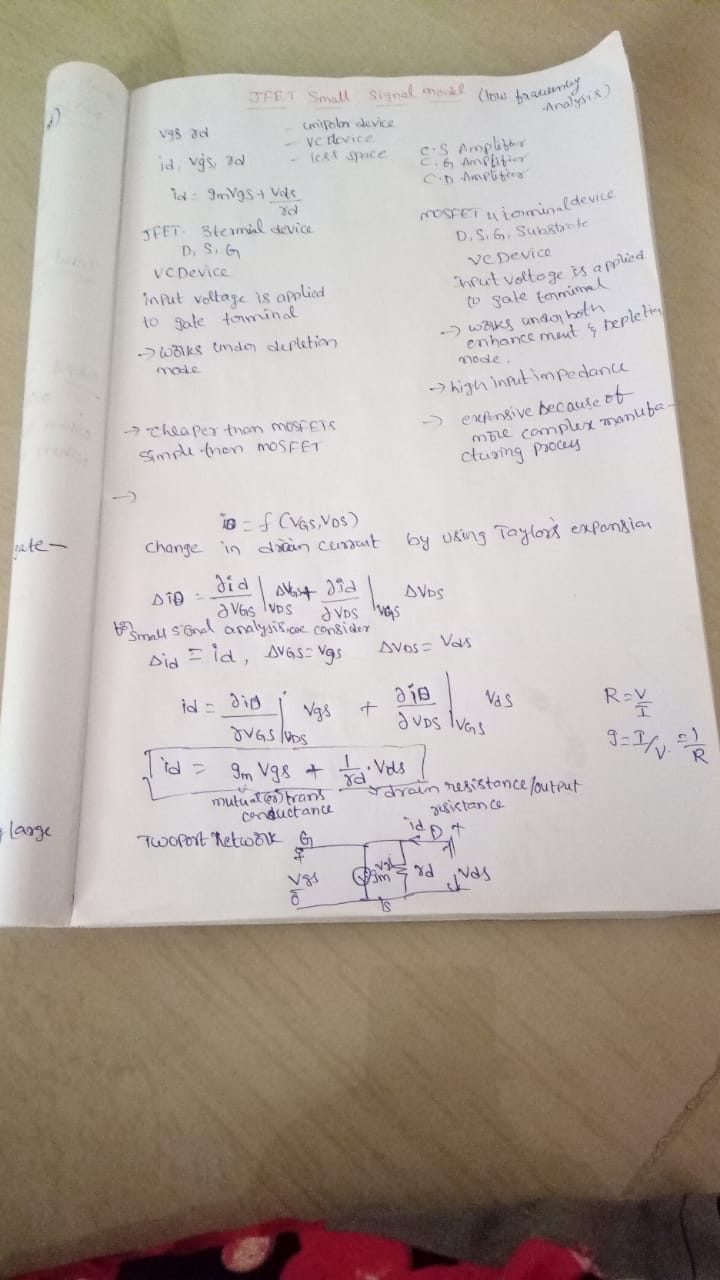 JFET Small Signal model (low frequency Analysis)
Vgs rd
- unipolar device
- VC device
- less space
id, Vgs, rd
id = gmVgs + Vds/rd
C.S Amplifier
C.G Amplifier
C.D Amplifier
JFET 3 termial device
D, S, G
VC Device
input voltage is applied
to gate terminal
→ works under depletion
mode
→ cheaper than MOSFETS
Simple than MOSFET
MOSFET 4 terminal device
D, S, G, Substrate
VC Device
input voltage is applied
to gate terminal
→ works under both
enhancement & depletion
mode.
→ high input impedance
→ expensive because of
more complex manufa-
cturing process
→
iD = f (VGS, VDS)
change in drain current by using Taylor's expansion
ΔiD = ∂id/∂VGS |VDS ΔVGS + ∂id/∂VDS |VGS ΔVDS
Small signal analysis we consider
Δid = id, ΔVGS = Vgs ΔVDS = Vds
id = ∂iD/∂VGS |VDS Vgs + ∂iD/∂VDS |VGS Vds
R = V/I
g = I/V = 1/R
id = gm Vgs + 1/rd . Vds
mutual (or) trans
conductance
drain resistance/output
resistance
Two port Network G
id D +
Vgs
gm Vgs rd Vds
S
large